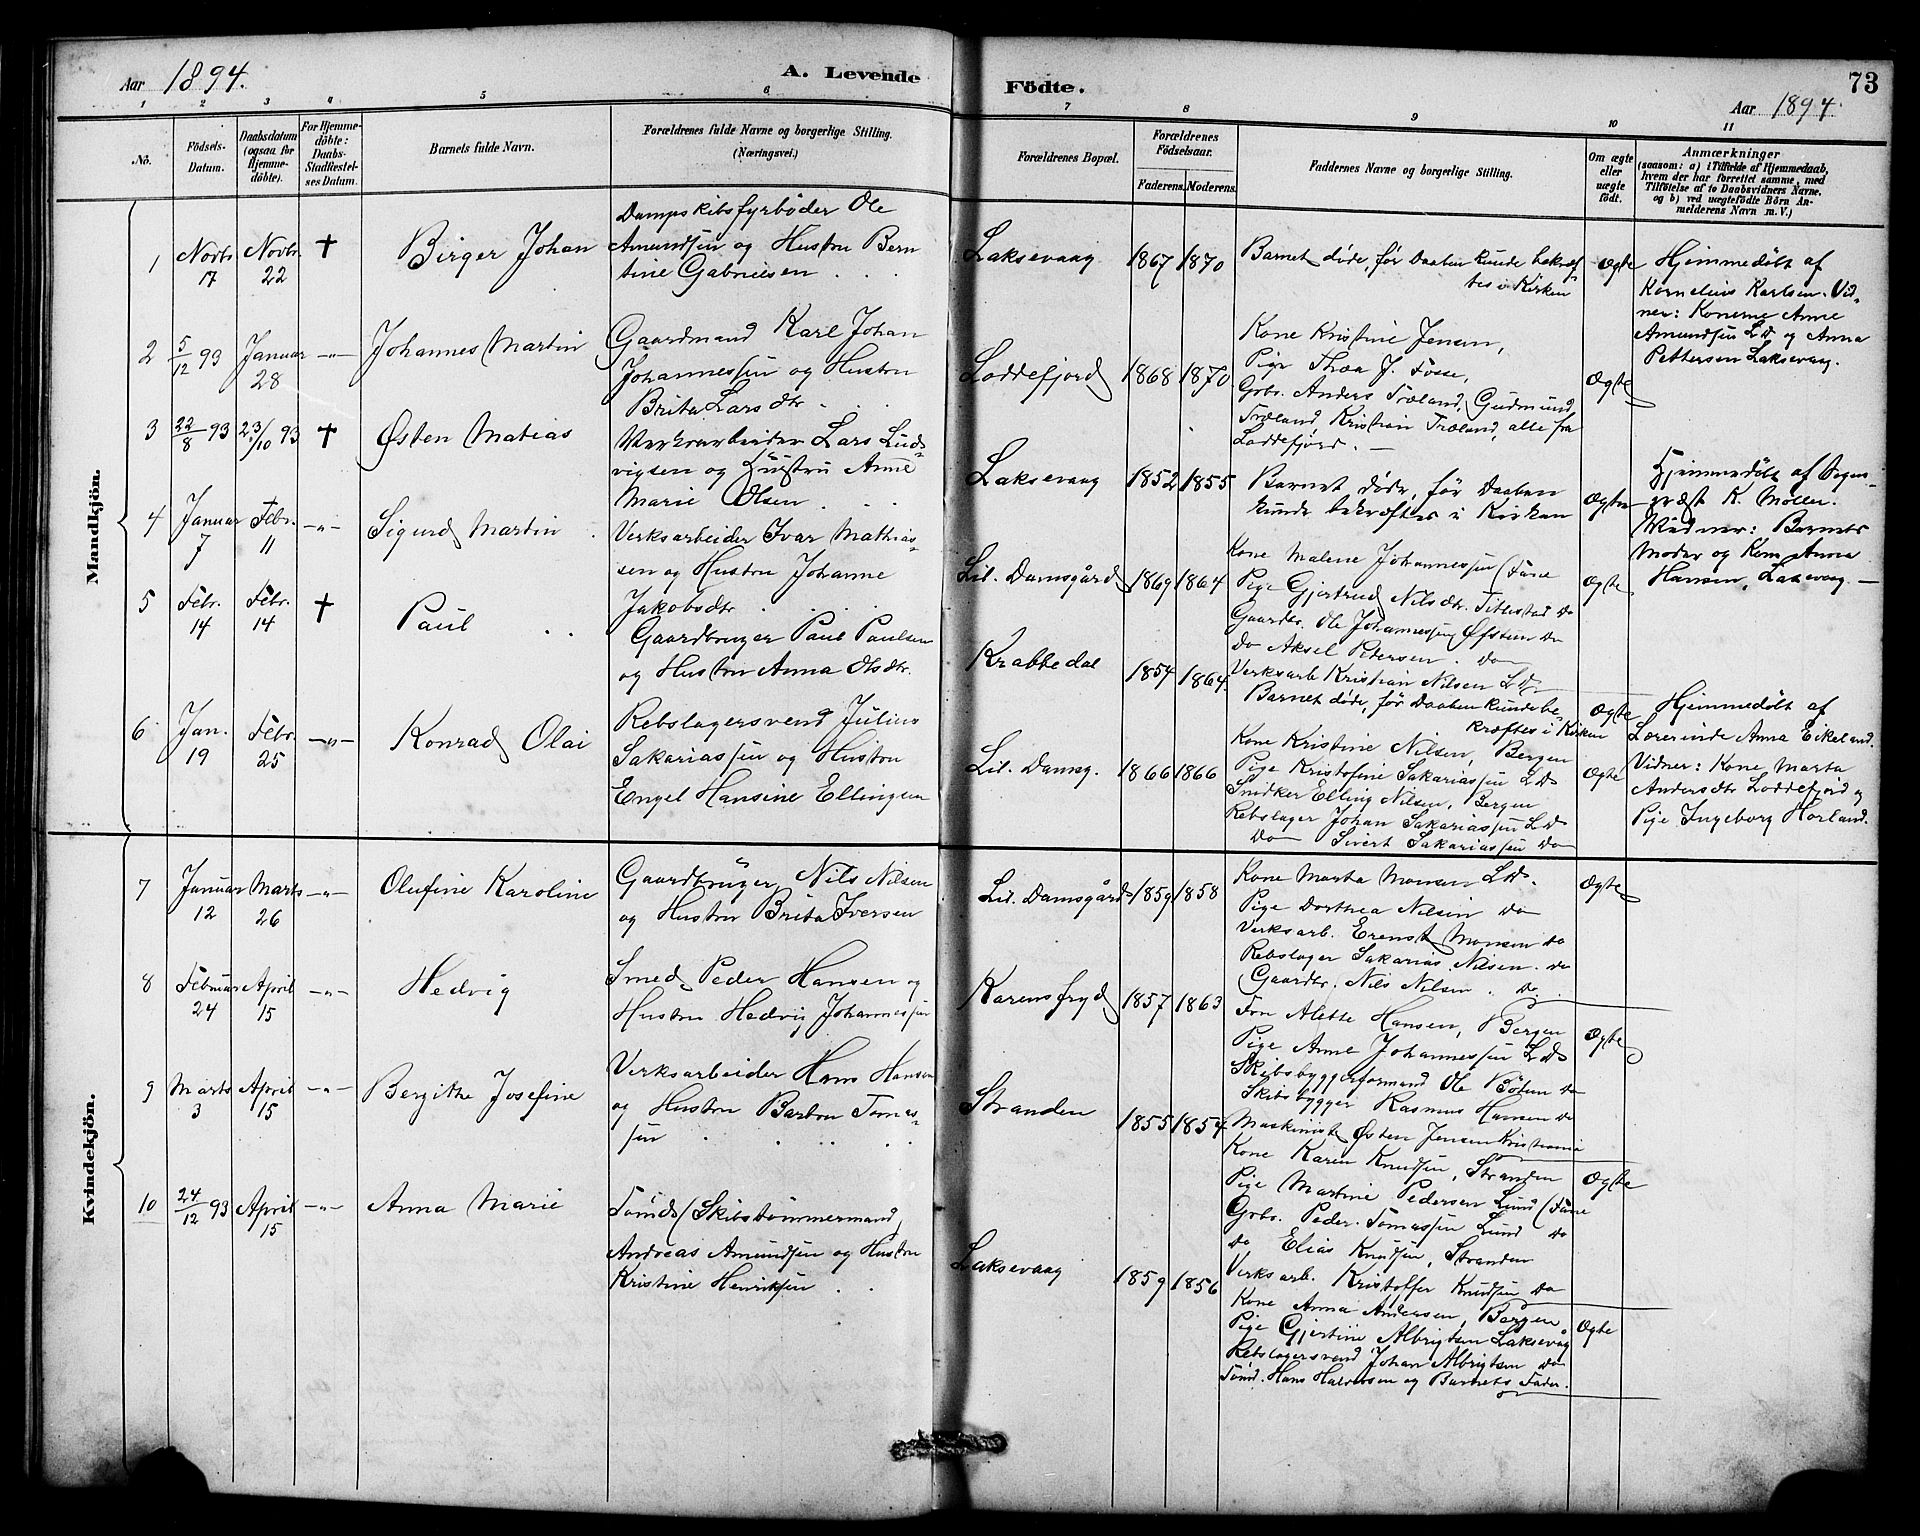 Aar 1894.
A. Levende
Födte.
73
Aar 1894.
1 2 3 4 5 6 7 8 9 10 11
No.
Födsels-
Datum.
Daabsdatum
(ogsaa for
Hjemme-
döbte).
For Hjemme-
döbte:
Daabs-
Stadfæstel-
ses Datum.
Barnets fulde Navn.
Forældrenes fulde Navne og borgerlige Stilling.
(Næringsvei.)
Forældrenes Bopæl.
Forældrenes
Födselsaar.
Faderens. Moderens.
Faddernes Navne og borgerlige Stilling.
Om ægte
eller
uægte
födt.
Anmærkninger
(saasom: a) i Tilfælde af Hjemmedaab,
hvem der har forrettet samme, med
Tilföielse af to Daabsvidners Navne,
og b) ved uægtefödte Börn An-
melderens Navn m. V.)
Mandkjön.
1 Novbr 17 Novbr. 22 † Birger Johan
Dampskibsfyrbøder Ole
Amundsen og Hustru Bern
tine Gabrielsen
Laksevaag 1867 1870
Barnet døde, før Daaben kunde bekræf
tes i Kirken
Ægte
Hjemmedøbt af
Kornelius Karlsen. Vid-
ner: Konerne Anne
Amundsen LD og Anna
Pettersen Laksevaag.
2 5/12 93 Januar 28 -"- Johannes Martin
Gaardmand Karl Johan
Johannessen og Hustru
Brita Larsdtr.
Loddefjord 1868 1870
Kone Kristine Jensen,
Pige Thea J. Fosse,
Grbr. Anders Træland, Gudmund
Træland, Kristian Træland, alle fra
Loddefjord. —
Ægte
3 22/8 93 23/10 93 † Østen Matias
Verksarbeider Lars Lud-
vigsen og Hustru Anne
Marie Olsen
Laksevaag 1852 1855
Barnet døde, før Daaben
kunde bekræftes i Kirken
Ægte
Hjemmedøbt af Sogne-
præst K. Møller.
Vidner: Barnets
Moder og Kone Anna
Hansen, Laksevaag. —
4 Januar 7 Febr. 11 -"- Sigurd Martin
Verksarbeider Ivar Mathias-
sen og Hustru Johanne
Jakobsdtr.
Lil. Damsgård 1869 1864
Kone Malene Johannessen (Fane
Pige Gjertrud Nilsdtr. Titlestad Do
Gaardbr. Ole Johannessen Øfsteen Do
Do Aksel Petersen. Do
Verksarb Kristian Nilsen LD.
Ægte
5 Febr. 14 Febr. 14 † Paul
Gaardbruger Paul Paulsen
og Hustru Anna Olsdtr.
Krabbedal 1854 1864.
Barnet døde, før Daaben kunde be-
kræftes i Kirken
Ægte
Hjemmedøbt af
Lærerinde Anna Eikeland.
Vidner: Kone Marta
Andersdtr Loddefjord og
Pige Ingeborg Horland.
6 Jan. 19 Febr. 25 -"- Konrad Olai
Rebslagersvend Julius
Sakariassen og Hustru
Engel Hansine Ellingsen
Lil. Damsg. 1866 1866
Kone Kristine Nilsen, Bergen
Pige Kristofine Sakariassen LD
Snedker Elling Nilsen, Bergen
Rebslager Johan Sakariassen LD
Do Sivert Sakariassen Do
Ægte
Kvindekjön.
7 Januar 12 Marts 26 -"- Olufine Karoline
Gaardbruger Nils Nilsen
og Hustru Brita Iversen
Lil. Damsgård 1859 1858
Kone Marta Monsen LD.
Pige Dorthea Nilsen Do
Verksarb. Erenst Monsen Do
Rebslager Sakarias Nilsen. Do
Gaardbr. Nils Nilsen. Do.
Ægte
8 Februar 24 April 15 -"- Hedvig
Smed Peder Hansen og
Hustru Hedvig Johannessen
Karensfryd 1857 1863
Fru Alette Hansen, Bergen
Pige Anne Johannessen LD
Skibsbyggerformand Ole Bøtun Do
Skibsbygger Rasmus Hansen Do
Maskinist Østen Jensen Kristiania
Ægte
9 Marts 3 April 15 -"- Bergithe Josefine
Verksarbeider Hans Hansen
og Hustru Barbra Tomas-
sen
Stranden 1855 1854
Kone Karen Knudsen, Stranden
Pige Martine Pedersen Lund (Fane
Grbr. Peder Tomassen Lund Do
Do Elias Knudsen, Stranden
Verksarb. Kristoffer Knudsen Do
Ægte
10 24/12 93 April 15 -"- Anna Marie
Tømd (Skibstømmermand)
Andreas Amundsen og Hustru
Kristine Henriksen
Laksevaag 1859 1856
Kone Anna Andersen, Bergen,
Pige Gjertine Albrigtsen Laksevåg
Rebslagersvend Johan Albrigtsen Do
Tømd. Hans Halvorsen og Barnets Fader.
Ægte